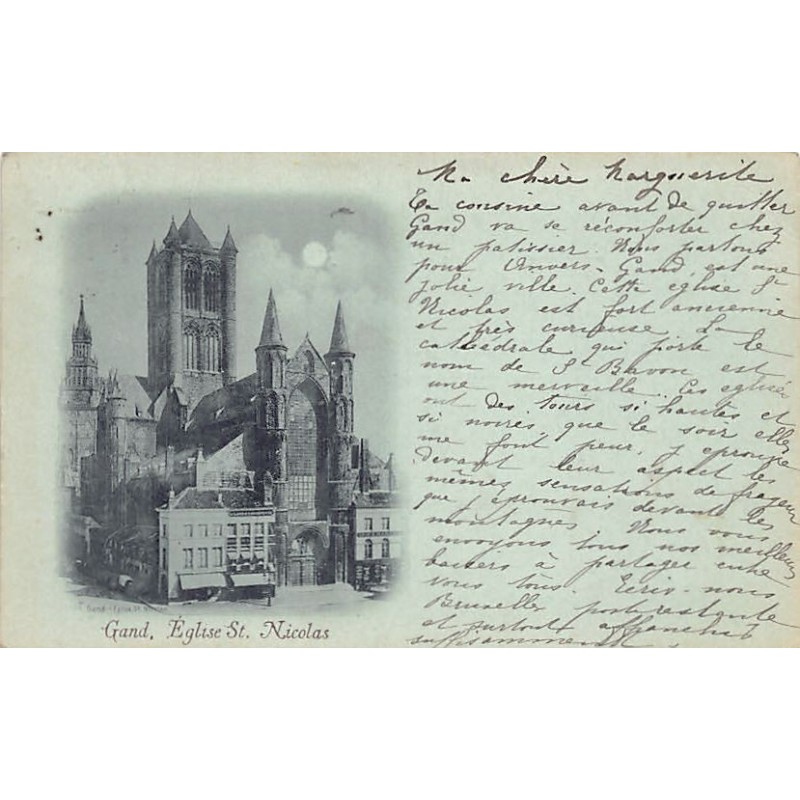 Ma chère Marguerite
Ta cousine avant de quitter
Gand va se réconforter chez
un patissier. Nous partons
pour Anvers. Gand, est une
jolie ville. Cette eglise St
Nicolas est fort ancienne
et très curieuse. La
cathédrale qui porte le
nom de St Bavon est
une merveille.. Ces eglises
ont des tours si hautes et
si noires que le soir elles
me font peur, j eprouve
devant leur aspect les
mêmes sensations de frayeur
que j eprouvais devant les
montagnes. Nous vous
envoyons tous nos meilleurs
baisers à partager entre
vous tous. Ecris-nous
Bruxelles poste restante
et surtout affranchis
suffisamment
Gand - Eglise St. Nicolas
Gand, Église St. Nicolas